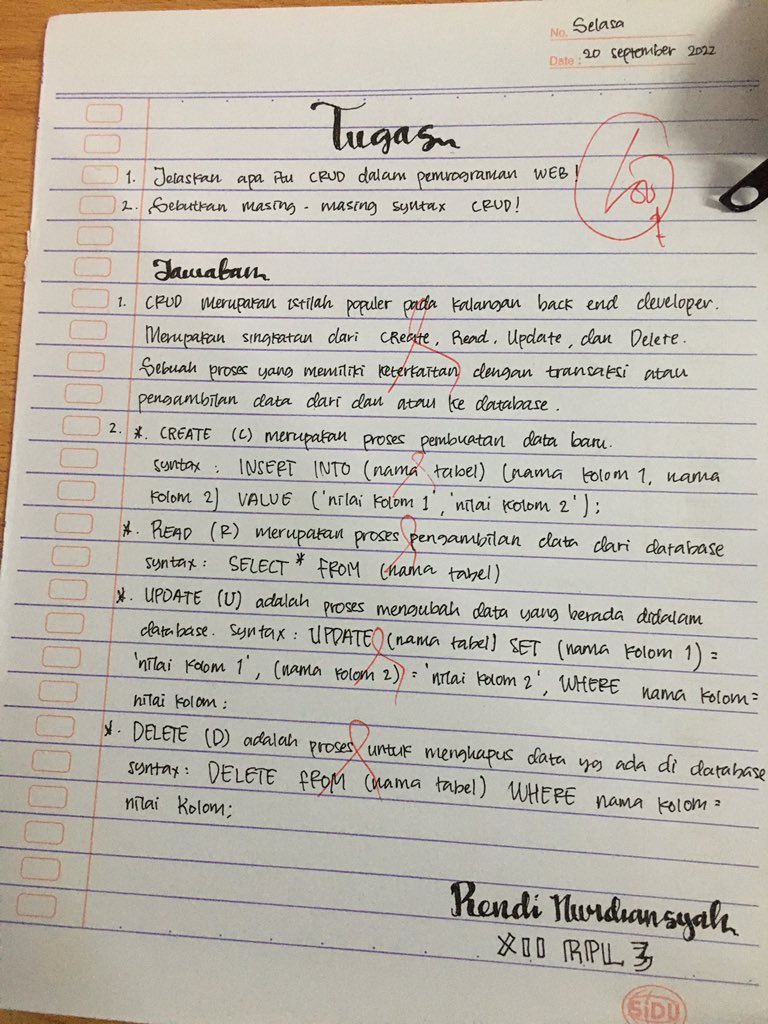 No. Selasa
Date : 20 september 2022
Tugas
1. Jelaskan apa itu CRUD dalam pemrograman WEB!
2. Sebutkan masing - masing syntax CRUD!
Jawaban
1. CRUD merupakan istilah populer pada kalangan back end developer.
Merupakan singkatan dari CReate, Read, Update, dan Delete.
Sebuah proses yang memiliki keterkaitan dengan transaksi atau
pengambilan data dari dan atau ke database.
2. *. CREATE (C) merupakan proses pembuatan data baru.
syntax : INSERT INTO (nama tabel) (nama kolom 1, nama
kolom 2) VALUE ('nilai kolom 1', 'nilai kolom 2');
*. READ (R) merupakan proses pengambilan data dari database
syntax : SELECT * FROM (nama tabel)
*. UPDATE (U) adalah proses mengubah data yang berada didalam
database. syntax : UPDATE (nama tabel) SET (nama kolom 1) =
'nilai kolom 1', (nama kolom 2) = 'nilai kolom 2', WHERE nama kolom =
nilai kolom;
*. DELETE (D) adalah proses untuk menghapus data yg ada di database
syntax : DELETE FROM (nama tabel) WHERE nama kolom =
nilai kolom;
Rendi Nurdiansyah
XII RPL 3
SiDU